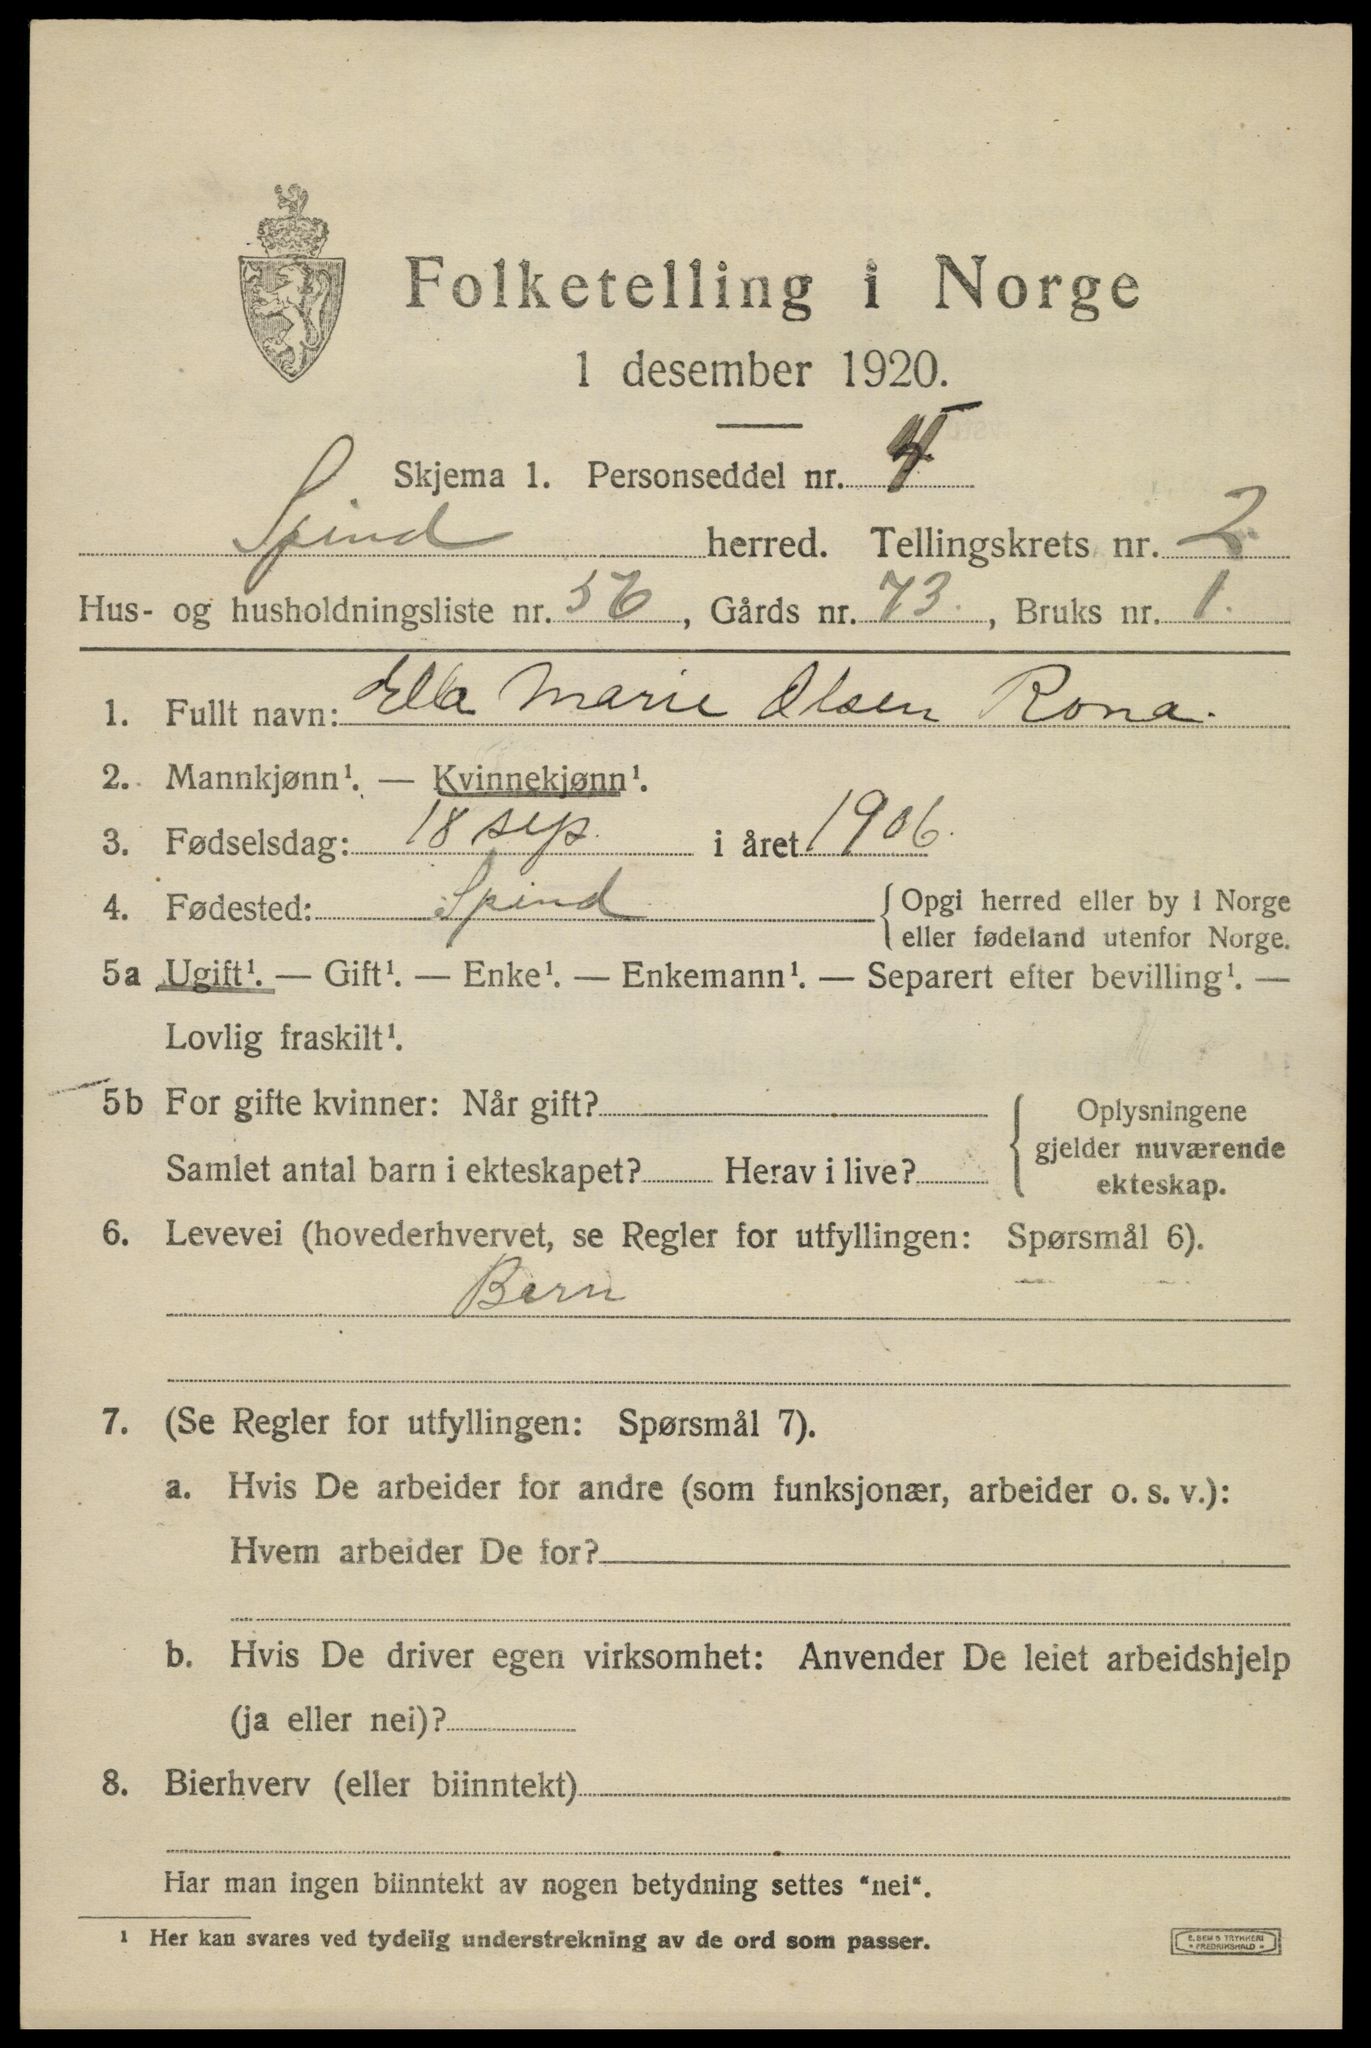 Folketelling i Norge
1 desember 1920.
Skjema 1. Personseddel nr.
Spind herred. Tellingskrets nr. 2
Hus- og husholdningsliste nr. 56, Gårds nr. 73., Bruks nr. 1.
1. Fullt navn: Ella Marie Olsen Rona.
2. Mannkjønn¹. — Kvinnekjønn¹.
3. Fødselsdag: 18 sep. i året 1906.
4. Fødested: Spind { Opgi herred eller by i Norge
eller fødeland utenfor Norge.
5a Ugift¹. — Gift¹. — Enke¹. — Enkemann¹. — Separert efter bevilling¹. —
Lovlig fraskilt¹.
5b For gifte kvinner: Når gift? { Oplysningene
gjelder nuværende
ekteskap.
Samlet antal barn i ekteskapet? Herav i live?
6. Levevei (hovederhvervet, se Regler for utfyllingen: Spørsmål 6).
Barn
7. (Se Regler for utfyllingen: Spørsmål 7).
a. Hvis De arbeider for andre (som funksjonær, arbeider o. s. v.):
Hvem arbeider De for?
b. Hvis De driver egen virksomhet: Anvender De leiet arbeidshjelp
(ja eller nei)?
8. Bierhverv (eller biinntekt)
Har man ingen biinntekt av nogen betydning settes "nei".
¹ Her kan svares ved tydelig understrekning av de ord som passer.
E. SEM'S TRYKKERI
* FREDRIKSHALD *